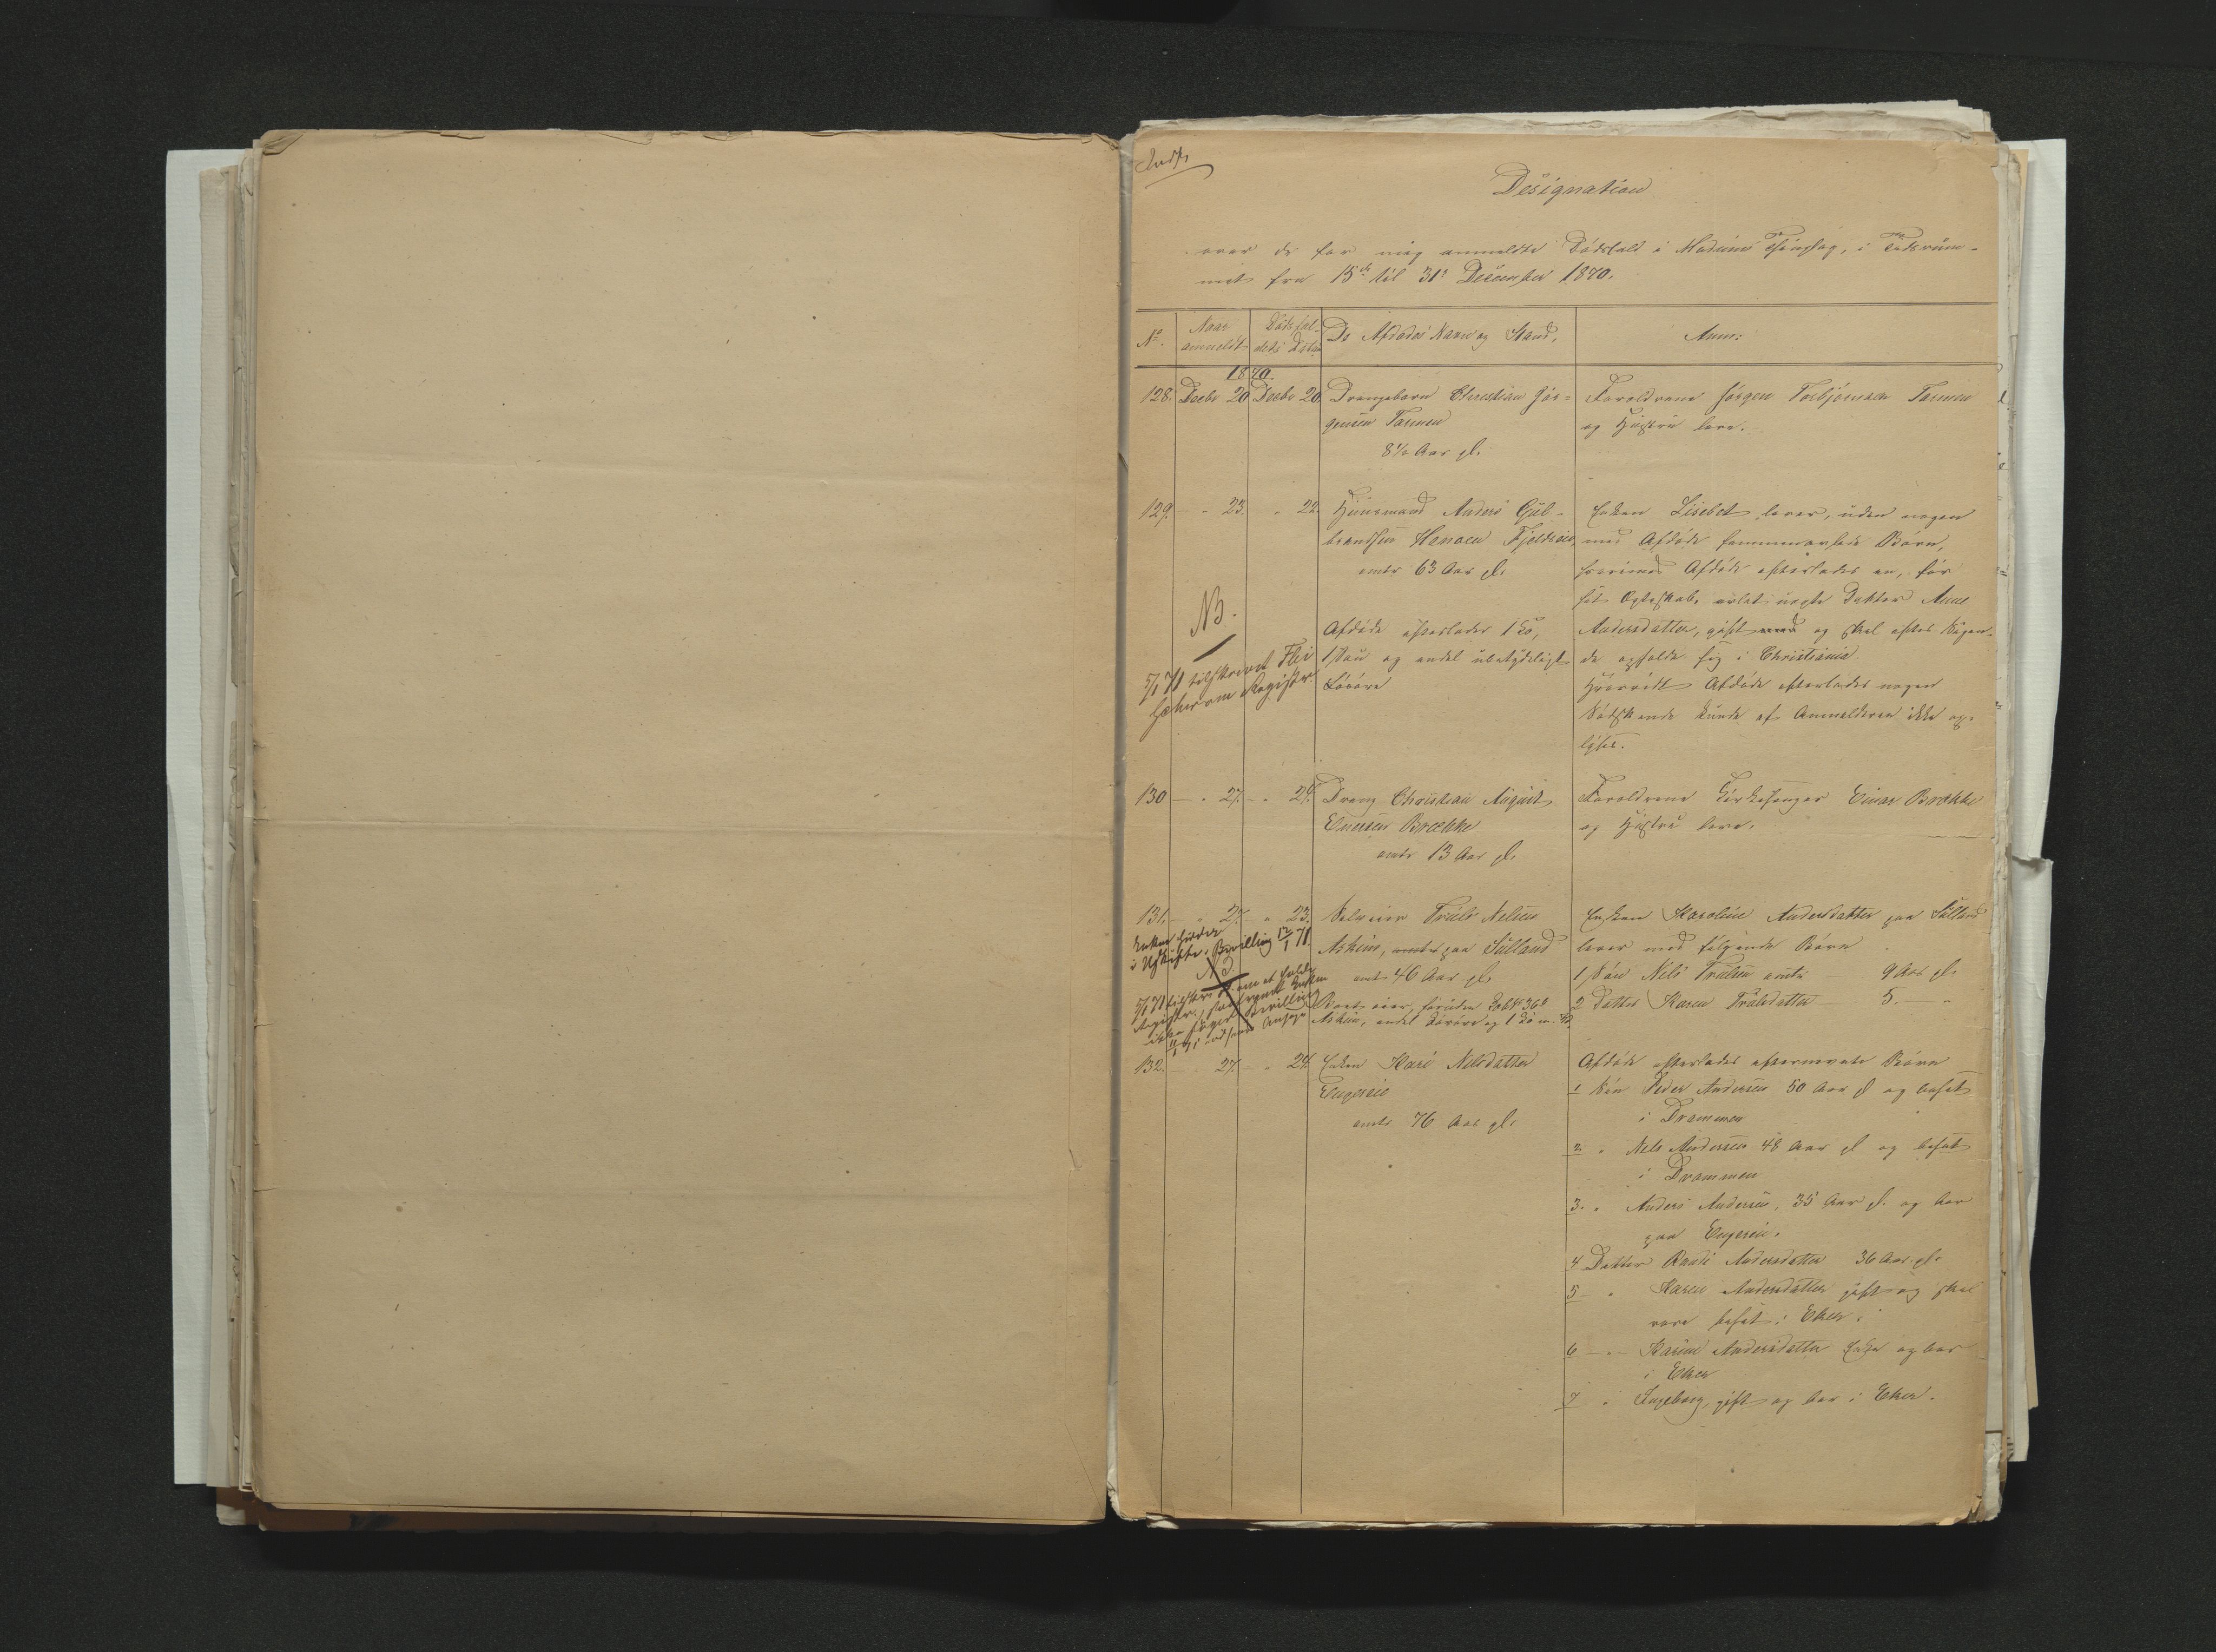 Designation
over de for mig anmeldte Dødsfald i Modums Thinglag, i Tidsrum-
met fra 15de til 31te December 1870.
No. Naar anmeldt Dødsfal- dets Datum De Afdødes Navn og Stand. Anm:
1870.
128. Decbr 20 Decbr 20. Drengebarn Christian Jør-
gensen Tarmen
8½ Aar gl.
Forældrene Jørgen Torbjørnsen Tarmen
og Hustru lever.
129. – " 23. " 22. Huusmand Anders Gul-
brandsen Henoen Fjeldeie,
omtr 63 Aar gl.
Enken Lisebet lever, uden nogen
med Afdøde sammenavlede Børn,
hvorimod Afdøde efterlader en, før
sit Ægteskab, avlet uægte Datter Anne
Andersdatter, gift med og skal efter Sigen-
de opholde sig i Christiania.
Hvorvidt Afdøde efterlader nogen
Sødskende kunde af Anmelderen ikke op-
lyses.
NB.
Afdøde efterlader 1 Ko,
1 Sau og endel ubetydeligt
Løsøre
5/1 71 tilskrevet
om Registr.
130 – " 27. – " 24. Dreng Christian August
Einersen Brække
omtr 13 Aar gl.
Forældrene Kirkesanger Einar Brække
og Hustru lever.
131. – " 27. – " 23. Selveier Truls Nelsen
Askim, omtr paa Sulland
omt 46 Aar gl.
Boet eier, foruden
Askim, endel Løsøre og 1 Ko
Enken Karoline Andersdatter paa Sulland
lever med følgende Børn
1, Søn Nels Trulsen omtr 9 Aar gl.
2 Datter Karen Trulsdatter 5. "
Enken hidder
i Uskifte, Bevilling 12/1 71.
NB
5/1 71 om at holde
Registr.
132. – 27. – " 24 Enken Kari Nilsdatter
Engereie
omtr 76 Aar gl.
Afdøde efterlader efternevnte Børn
1 Søn Peder Andersen 50 Aar gl og bosat
i Drammen
2. " Nels Andersen 48 Aar gl og bosat
i Drammen
3. " Anders Andersen, 35 Aar gl. og bor
paa Engereie.
4 Datter Randi Andersdatter 36 Aar gl.
5 – " Karen Andersdatter gift og skal
være bosat i Eker.
6 – " – Karine Andersdatter Enke og bor
i Eker
7 " Ingeborg, gift og bor i Eker.